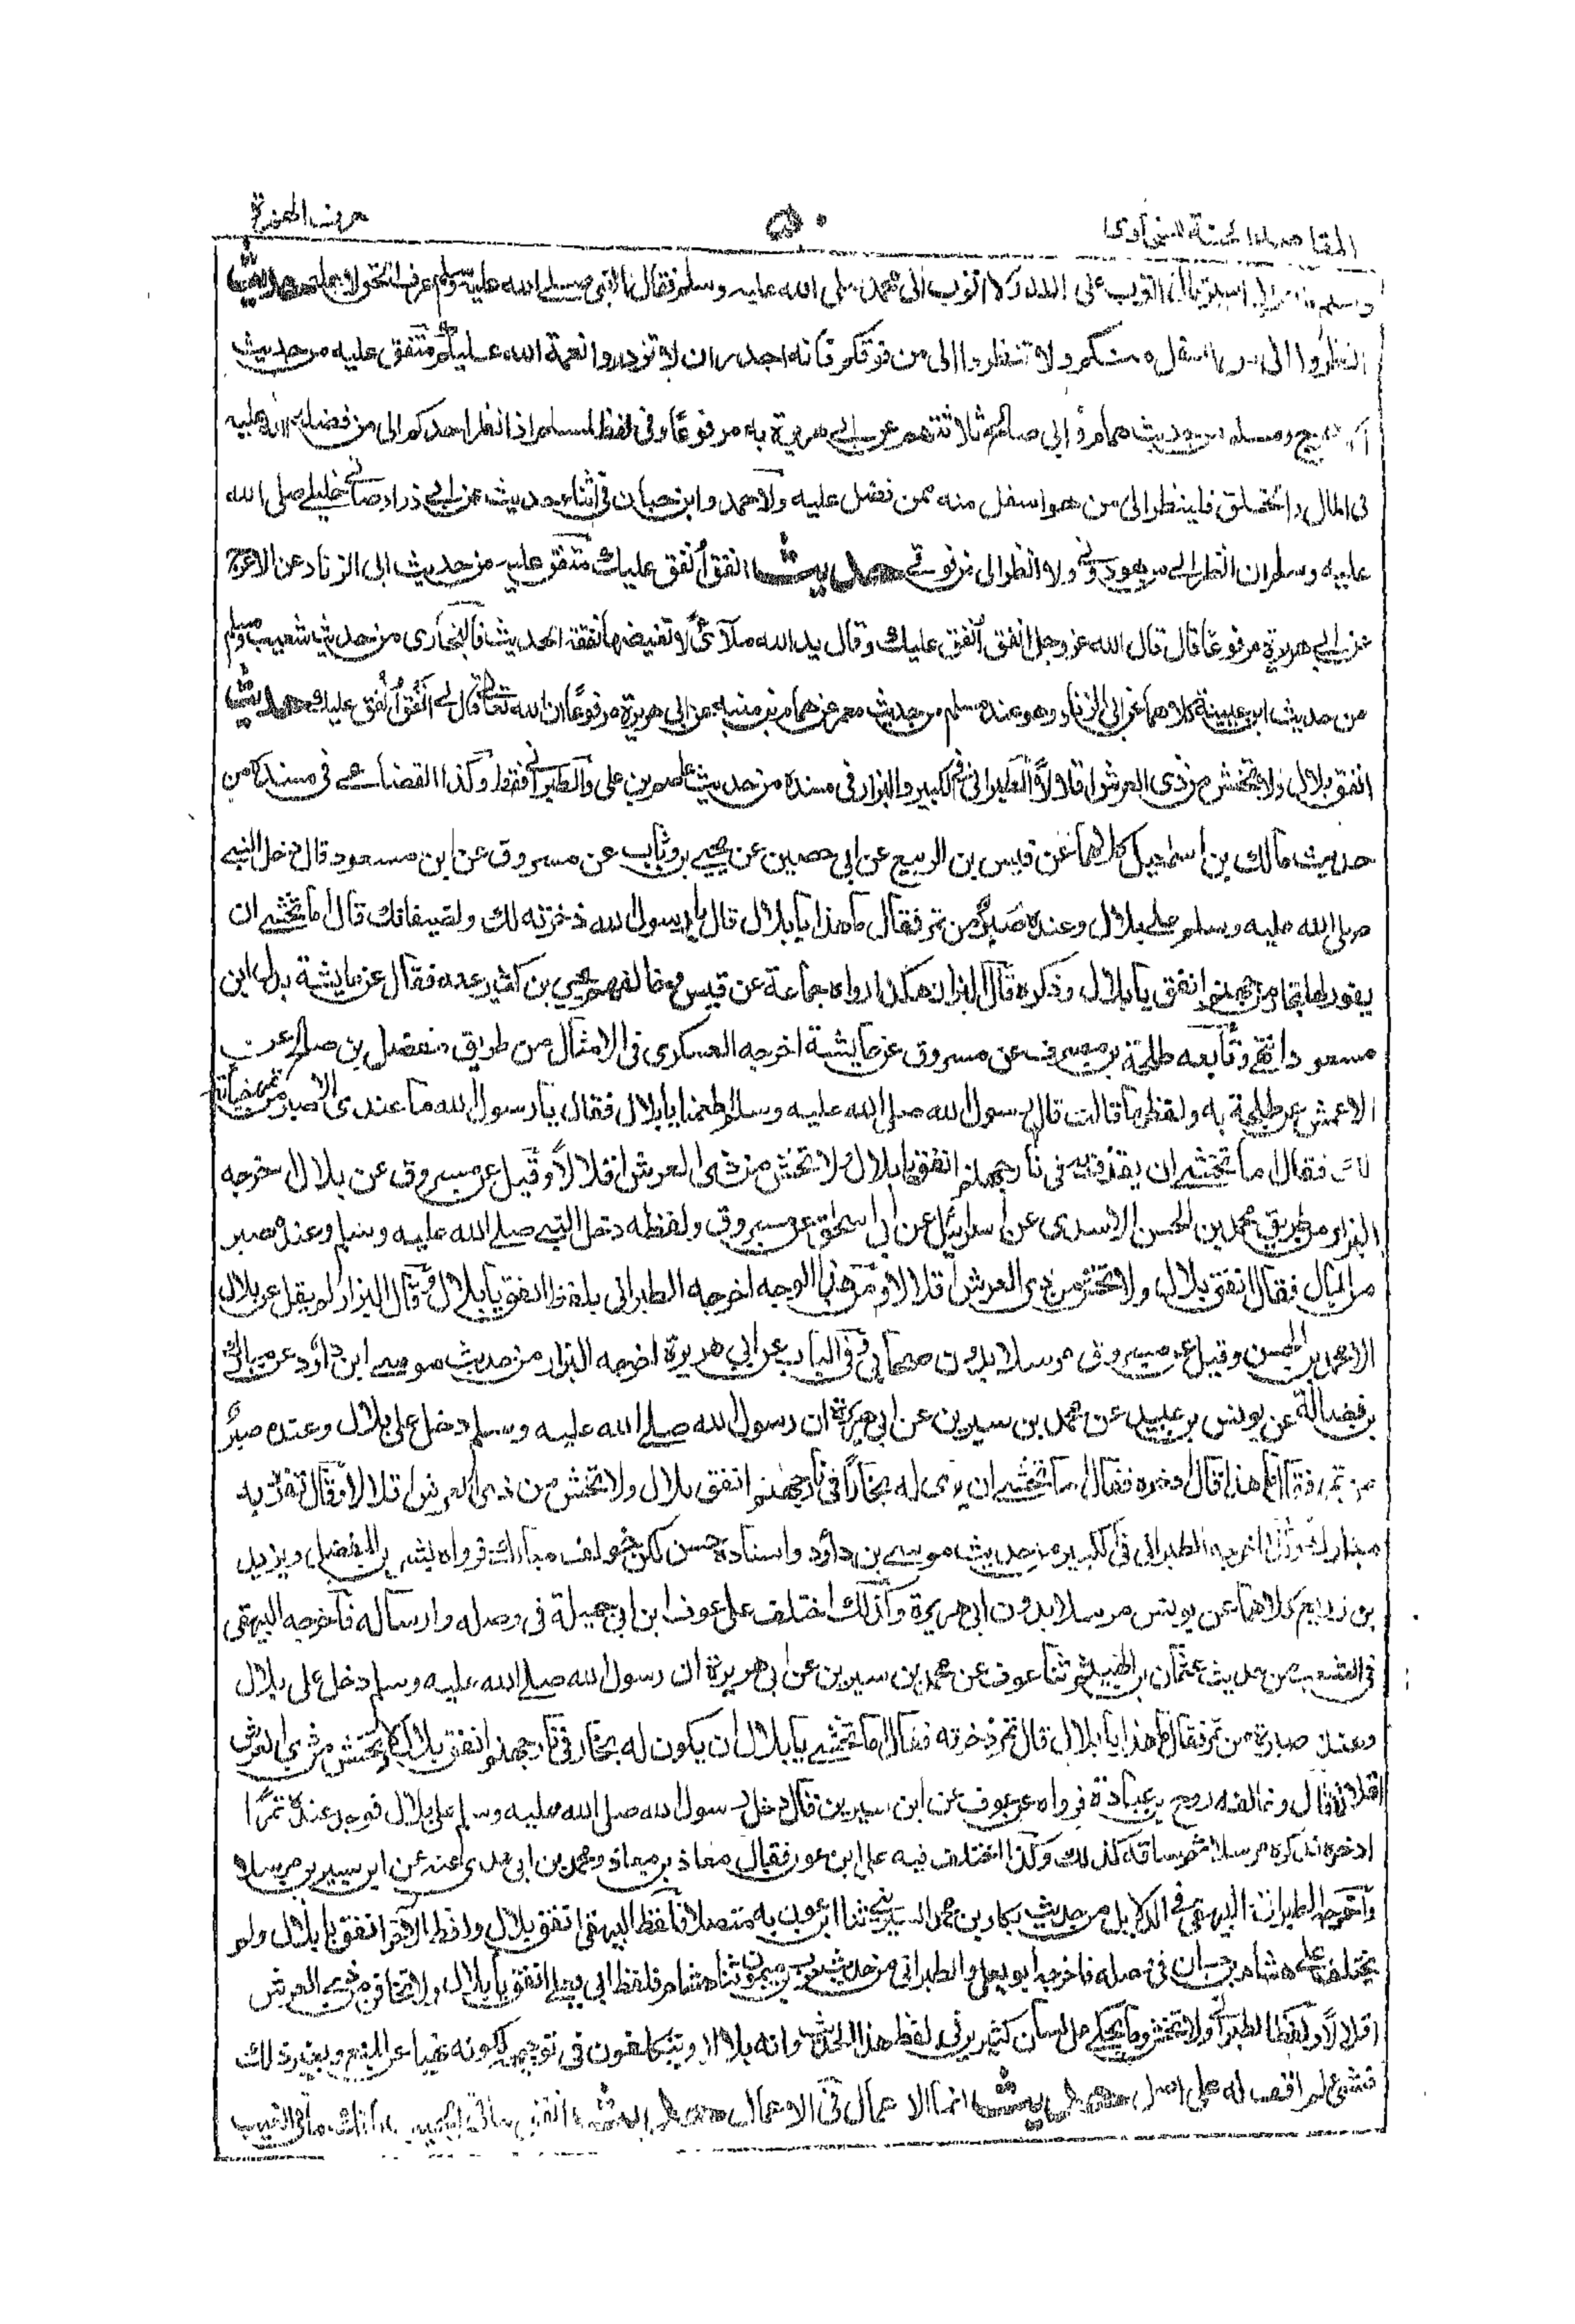 المقاصد الحسنة للسخاوى ٥٠ حرف الهمزة
وسلم اسير فقال اللهم انى اتوب الى الله ولا اتوب الى محمد صلى الله عليه وسلم فقال النبى صلى الله عليه وسلم عرف الحق لاهله حديث
انظروا الى من هو اسفل منكم ولا تنظروا الى من فوقكم فانه اجدر ان لا تزدروا نعمة الله عليكم متفق عليه من حديث
الاعرج ومسلم من حديث همام وابى صالح ثلاثتهم عن ابى هريرة به مرفوعا وفى لفظ لمسلم اذا نظر احدكم الى من فضل الله عليه
فى المال والخلق فلينظر الى من هو اسفل منه ممن فضل عليه ولاحمد وابن حبان فى اثناء حديث عن ابى ذر اوصانى خليلى صلى الله
عليه وسلم ان انظر الى من هو دونى ولا انظر الى من فوقى حديث انفق انفق عليك متفق عليه من حديث ابى الزناد عن الاعرج
عن ابى هريرة مرفوعا قال قال الله عز وجل انفق انفق عليك وقال يد الله ملآى لا تغيضها نفقة الحديث فالبخارى من حديث شعيب ومسلم
من حديث ابن عيينة كلاهما عن ابى الزناد وهو عند مسلم من حديث معمر عن همام بن منبه عن ابى هريرة مرفوعا ان الله تعالى قال لى انفق انفق عليك حديث
انفق بلال ولا تخش من ذى العرش اقلالا الطبرانى فى الكبير والبزار فى مسنده من حديث عاصم بن على والطبرانى فقط وكذا القضاعى فى مسنده من
حديث مالك بن اسماعيل كلاهما عن قيس بن الربيع عن ابى حصين عن يحيى بن وثاب عن مسروق عن ابن مسعود قال دخل النبى
صلى الله عليه وسلم على بلال وعنده صبر من تمر فقال ما هذا يا بلال قال يا رسول الله ذخرته لك ولضيفانك قال اما تخشى ان
يفور لها بخار من جهنم انفق يا بلال وذكره قال البزار هكذا رواه جماعة عن قيس وخالفهم يحيى بن كثير عنه فقال عن عايشة بدل ابن
مسعود انتهى وتابعه طلحة بن مصرف عن مسروق عن عايشة اخرجه العسكرى فى الامثال من طريق مفضل بن صالح عن
الاعمش عن طلحة به ولفظها قالت قال رسول الله صلى الله عليه وسلم اطعمنا يا بلال فقال يا رسول الله ما عندى الا صبر من تمر خبأته
لك فقال اما تخشى ان يقذف به فى نار جهنم انفق يا بلال ولا تخش من ذى العرش اقلالا وقيل عن مسروق عن بلال اخرجه
البزار من طريق محمد بن الحسن الاسدى عن اسرائيل عن ابى اسحاق عن مسروق ولفظه دخل النبى صلى الله عليه وسلم وعنده صبر
من المال فقال انفق بلال ولا تخش من ذى العرش اقلالا ومن هذا الوجه اخرجه الطبرانى بلفظ انفق يا بلال وقال البزار لم يقل عن بلال
الا محمد بن الحسن وقيل عن مسروق مرسلا بدون صحابى وفى الباب عن ابى هريرة اخرجه البزار من حديث موسى ابن داؤد عن مبارك
بن فضالة عن يونس بن عبيد عن محمد بن سيرين عن ابى هريرة ان رسول الله صلى الله عليه وسلم دخل على بلال وعنده صبر
من تمر فقال ما هذا قال ادخره فقال اما تخشى ان يرى له بخارا فى نار جهنم انفق بلال ولا تخش من ذى العرش اقلالا وقال تفرد به
مبارك وكذا اخرجه الطبرانى فى الكبير من حديث موسى بن داؤد واسناده حسن لكن خولف مبارك فرواه بشر بن المفضل ويزيد
بن زريع كلاهما عن يونس مرسلا بدون ابى هريرة وكذلك اختلف على عوف ابن ابى جميلة فى وصله وارساله فاخرجه البيهقى
فى الشعب من حديث عثمان بن الهيثم ثنا عوف عن محمد بن سيرين عن ابى هريرة ان رسول الله صلى الله عليه وسلم دخل على بلال
وعنده صبرة من تمر فقال ما هذا يا بلال قال تمر ذخرته فقال اما تخشى يا بلال ان يكون له بخار فى نار جهنم انفق بلال ولا تخش من ذى العرش
اقلالا قال وخالفه روح بن عبادة فرواه عن عوف عن ابن سيرين قال دخل رسول الله صلى الله عليه وسلم على بلال فوجد عنده تمرا
ادخره فذكره مرسلا ثم ساقه كذلك وكذا اختلف فيه على ابن عون فقال معاذ بن معاذ ومحمد بن ابى عدى عنه عن ابن سيرين مرسلا
واخرجه الطبرانى البيهقى فى الدلايل من حديث بكار بن محمد السيرينى ثنا ابن عون به متصلا فلفظ البيهقى انفق بلال ولفظ الآخر انفق يا بلال ولم
يختلف على هشام بن حسان فى وصله فاخرجه ابو يعلى والطبرانى من حديث حرب بن ميمون ثنا هشام فلفظ ابى يعلى انفق يا بلال ولا تخافن من ذى العرش
اقلالا ولفظ الطبرانى ولا تخش وما يحكى على لسان كثيرين فى لفظ هذا الحديث وانه بلالا ويتكلفون فى توجيهه لكونه نهيا عن المنع وبغير ذلك
فشىء لم اقف له على اصل حديث انما الاعمال فى الاعمال حديث انفق ما فى الجيب ياتك ما فى الغيب